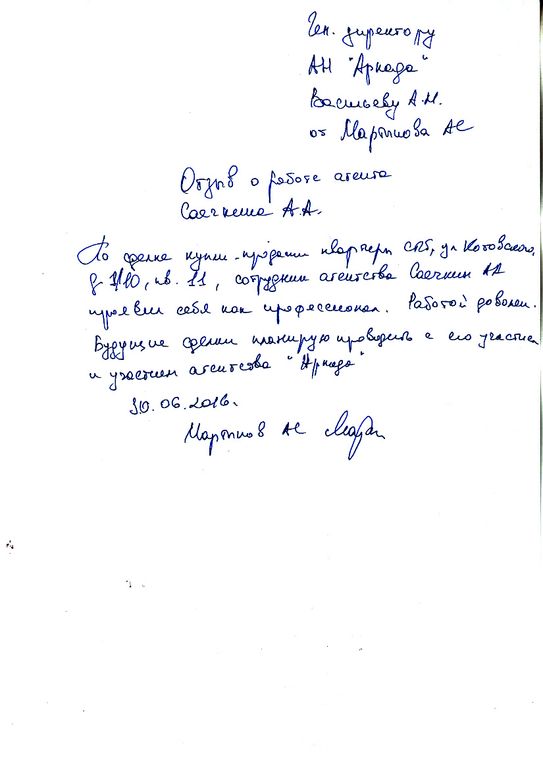 Ген. директору
АН "Аркада"
Васильеву А.Н.
от Мартынова АС
Отзыв о работе агента
Саечкина А.А.
По сделке купли-продажи квартиры СПб, ул Котовского,
д 1/10, кв. 11, сотрудник агентства Саечкин АА
проявил себя как профессионал. Работой доволен.
Будущие сделки планирую проводить с его участием
и участием агентства "Аркада"
30.06.2016.
Мартынов АС